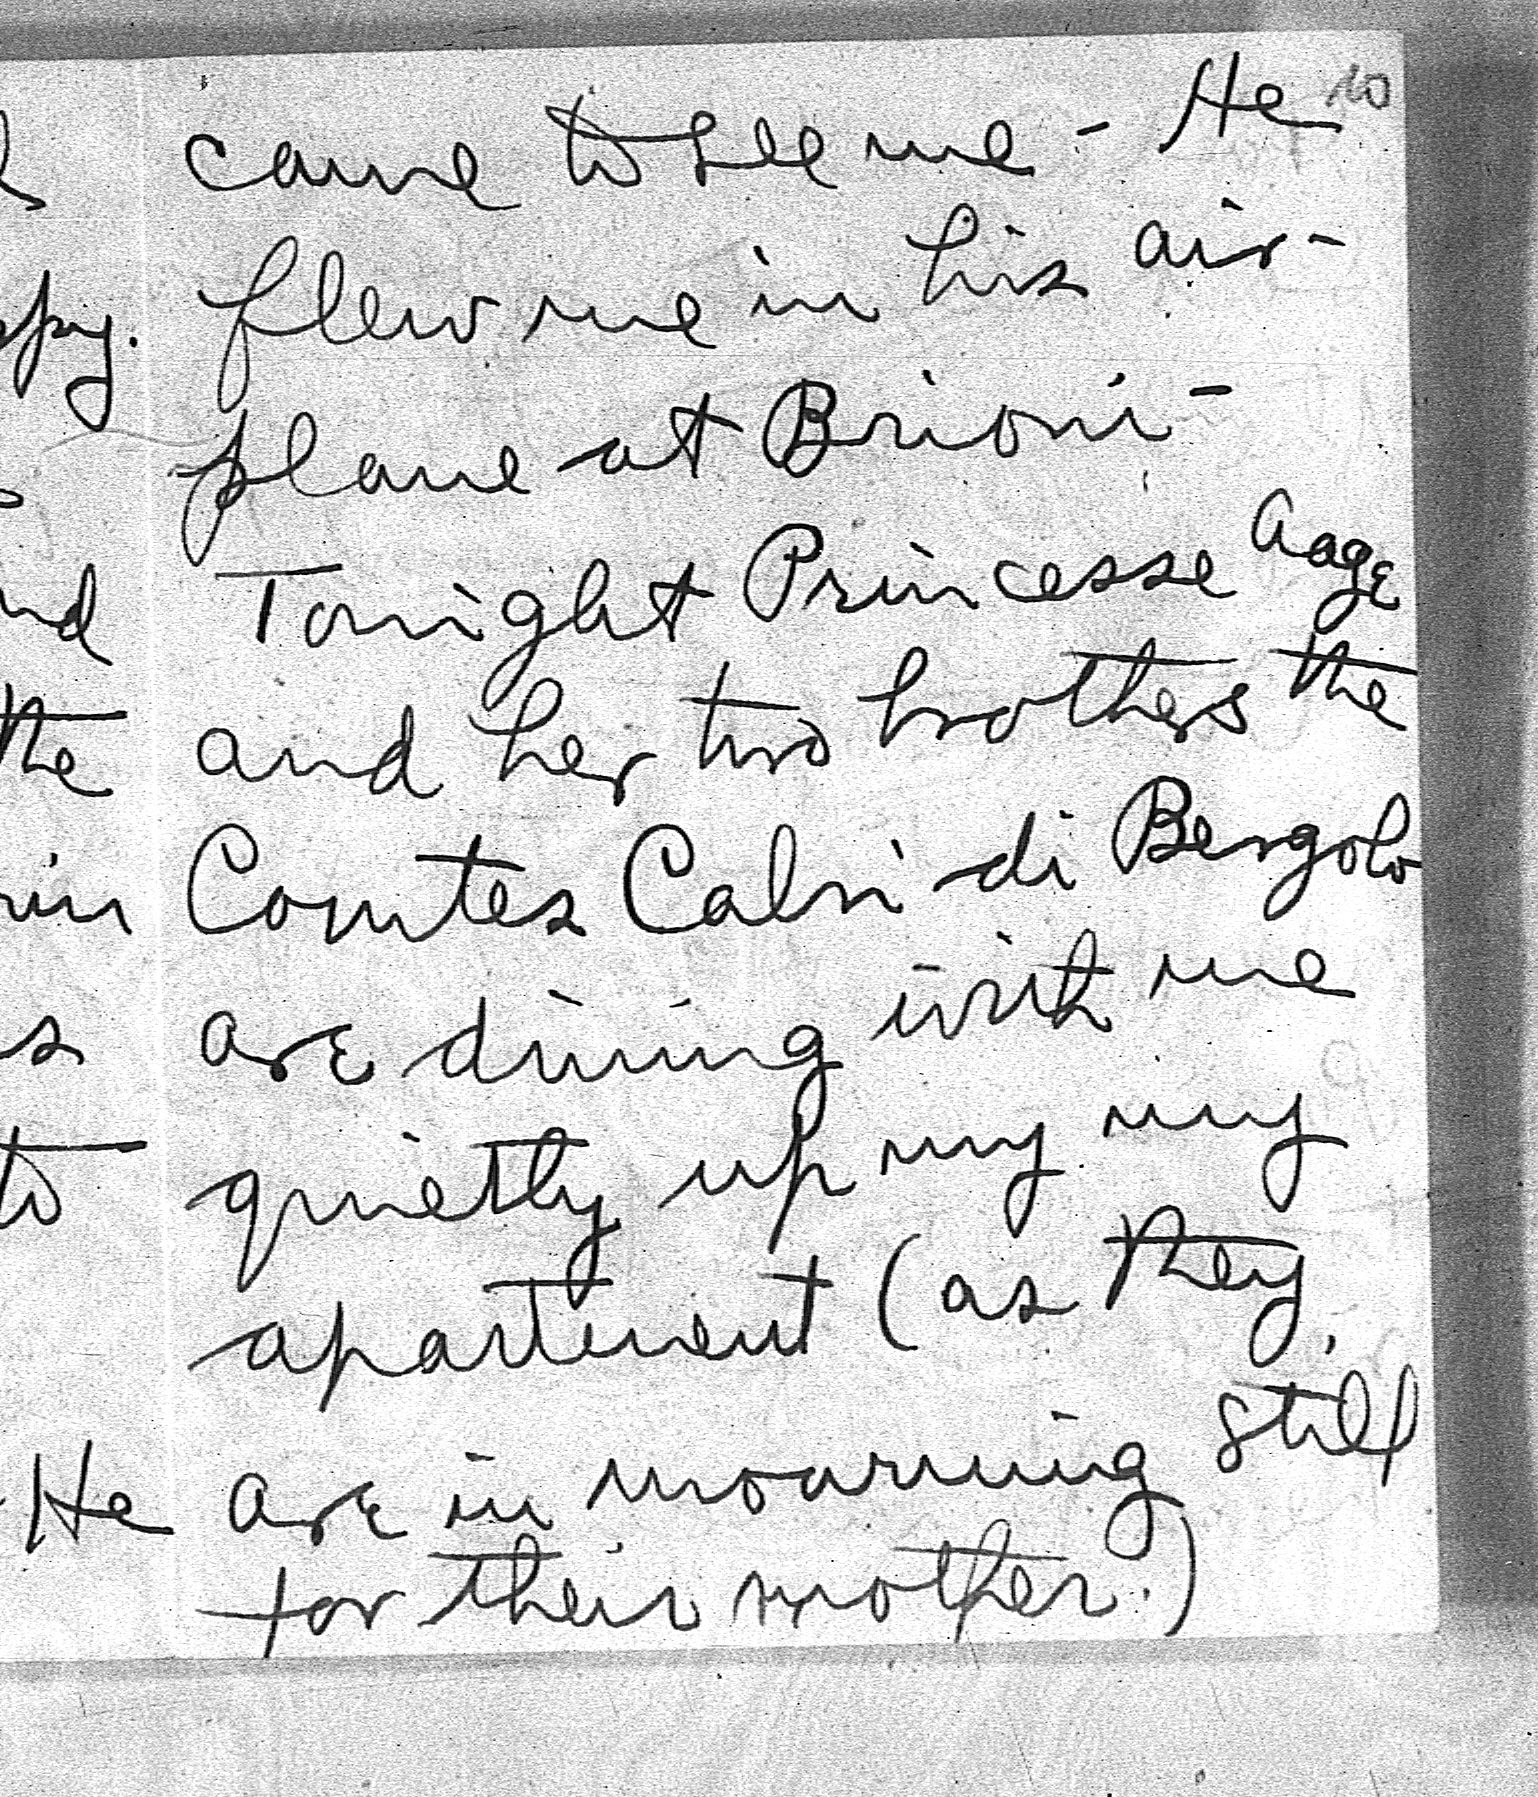 10
came to see me - He
flew me in his air-
plane at Brioni -
Tonight Princesse Aage
and her two brothers the
Comtes Calvi di Bergolo
are dining with me
quietly up my my
apartment (as they
are in mourning still
for their mother.)
py.
nd
the
in
s
to
He